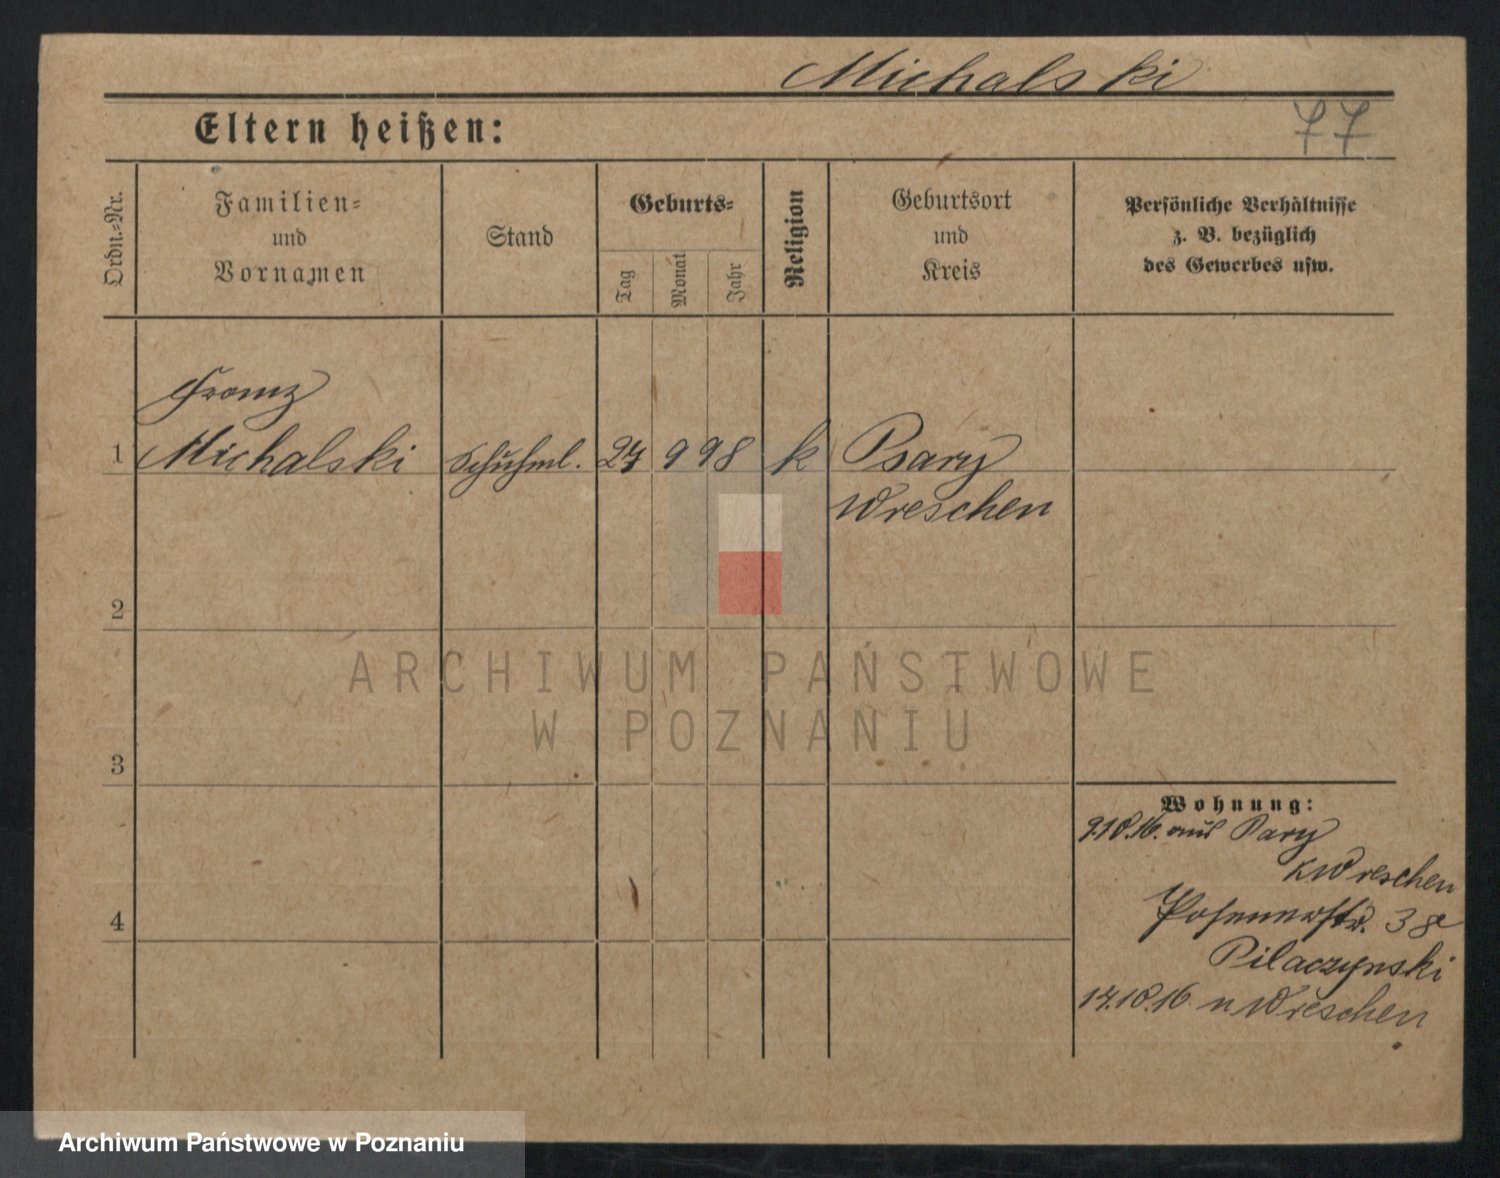 Michalski
77
Eltern heißen:
Ordn.-Nr.
Familien-
und
Vornamen
Stand
Geburts-
Tag
Monat
Jahr
Religion
Geburtsort
und
Kreis
Persönliche Verhältnisse
z. B. bezüglich
des Gewerbes usw.
Franz
1 Michalski Schuhml. 27 9 98 k Psary
Wreschen
2
ARCHIWUM PAŃSTWOWE
W POZNANIU
3
Wohnung:
9.10.16. aus Psary
K Wreschen
4
Posenerstr. 38
Pilaczynski
14.10.16. n Wreschen
Archiwum Państwowe w Poznaniu